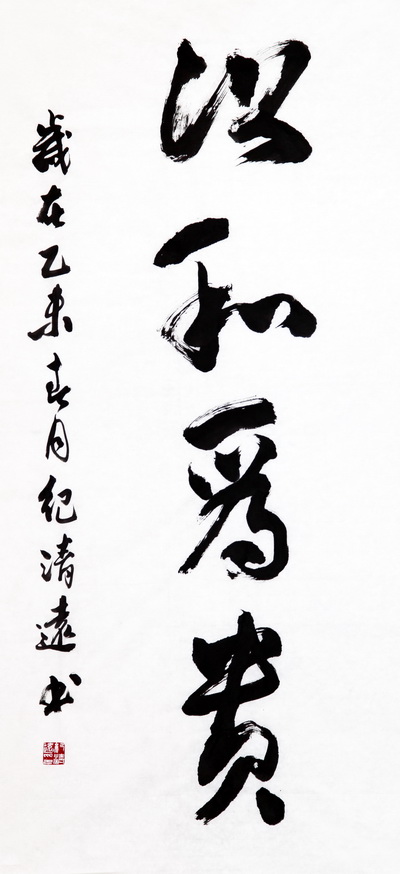 以和爲貴
歲在乙未春月紀清遠書